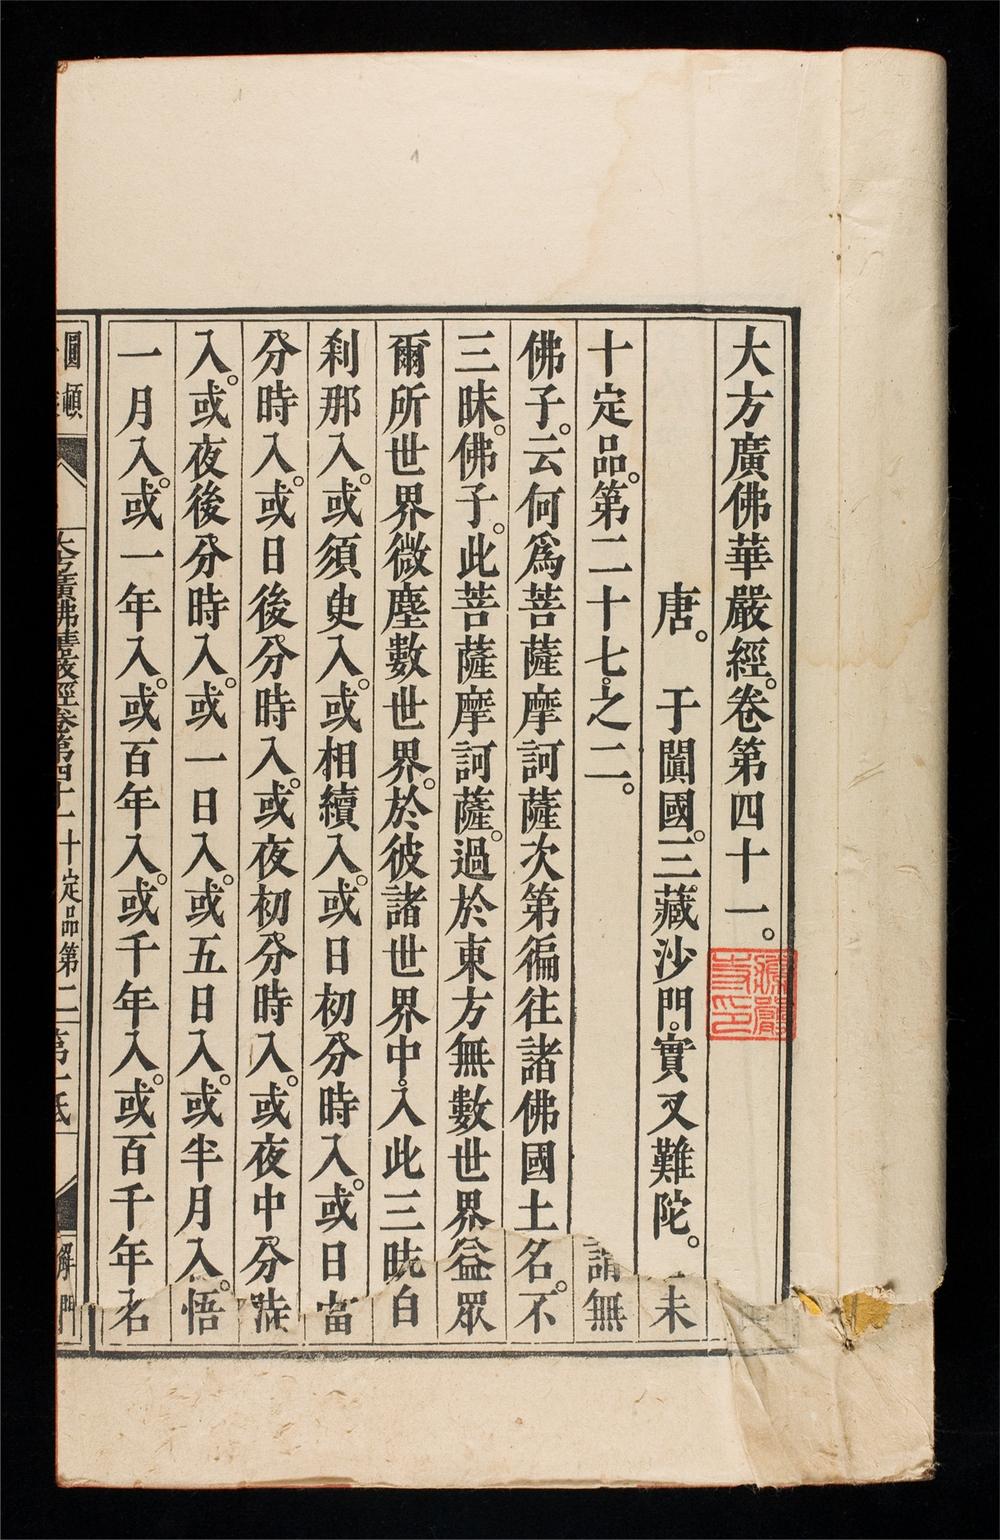 大方廣佛華嚴經。卷第四十一。
唐。 于闐國。三藏沙門。實叉難陀。 未
十定品。第二十七。之二。 請無
佛子。云何爲菩薩摩訶薩次第徧往諸佛國土名。不
三昧。佛子。此菩薩摩訶薩。過於東方無數世界益眾
爾所世界微塵數世界。於彼諸世界中。入此三白
剎那入。或須臾入。或相續入。或日初分時入。或日
分時入。或日後分時入。或夜初分時入。或夜中分
入。或夜後分時入。或一日入。或五日入。或半月入。悟
一月入。或一年入。或百年入。或千年入。或百千年
圓頓 大方廣佛華嚴經卷第四十一 十定品第二 第一紙 解門